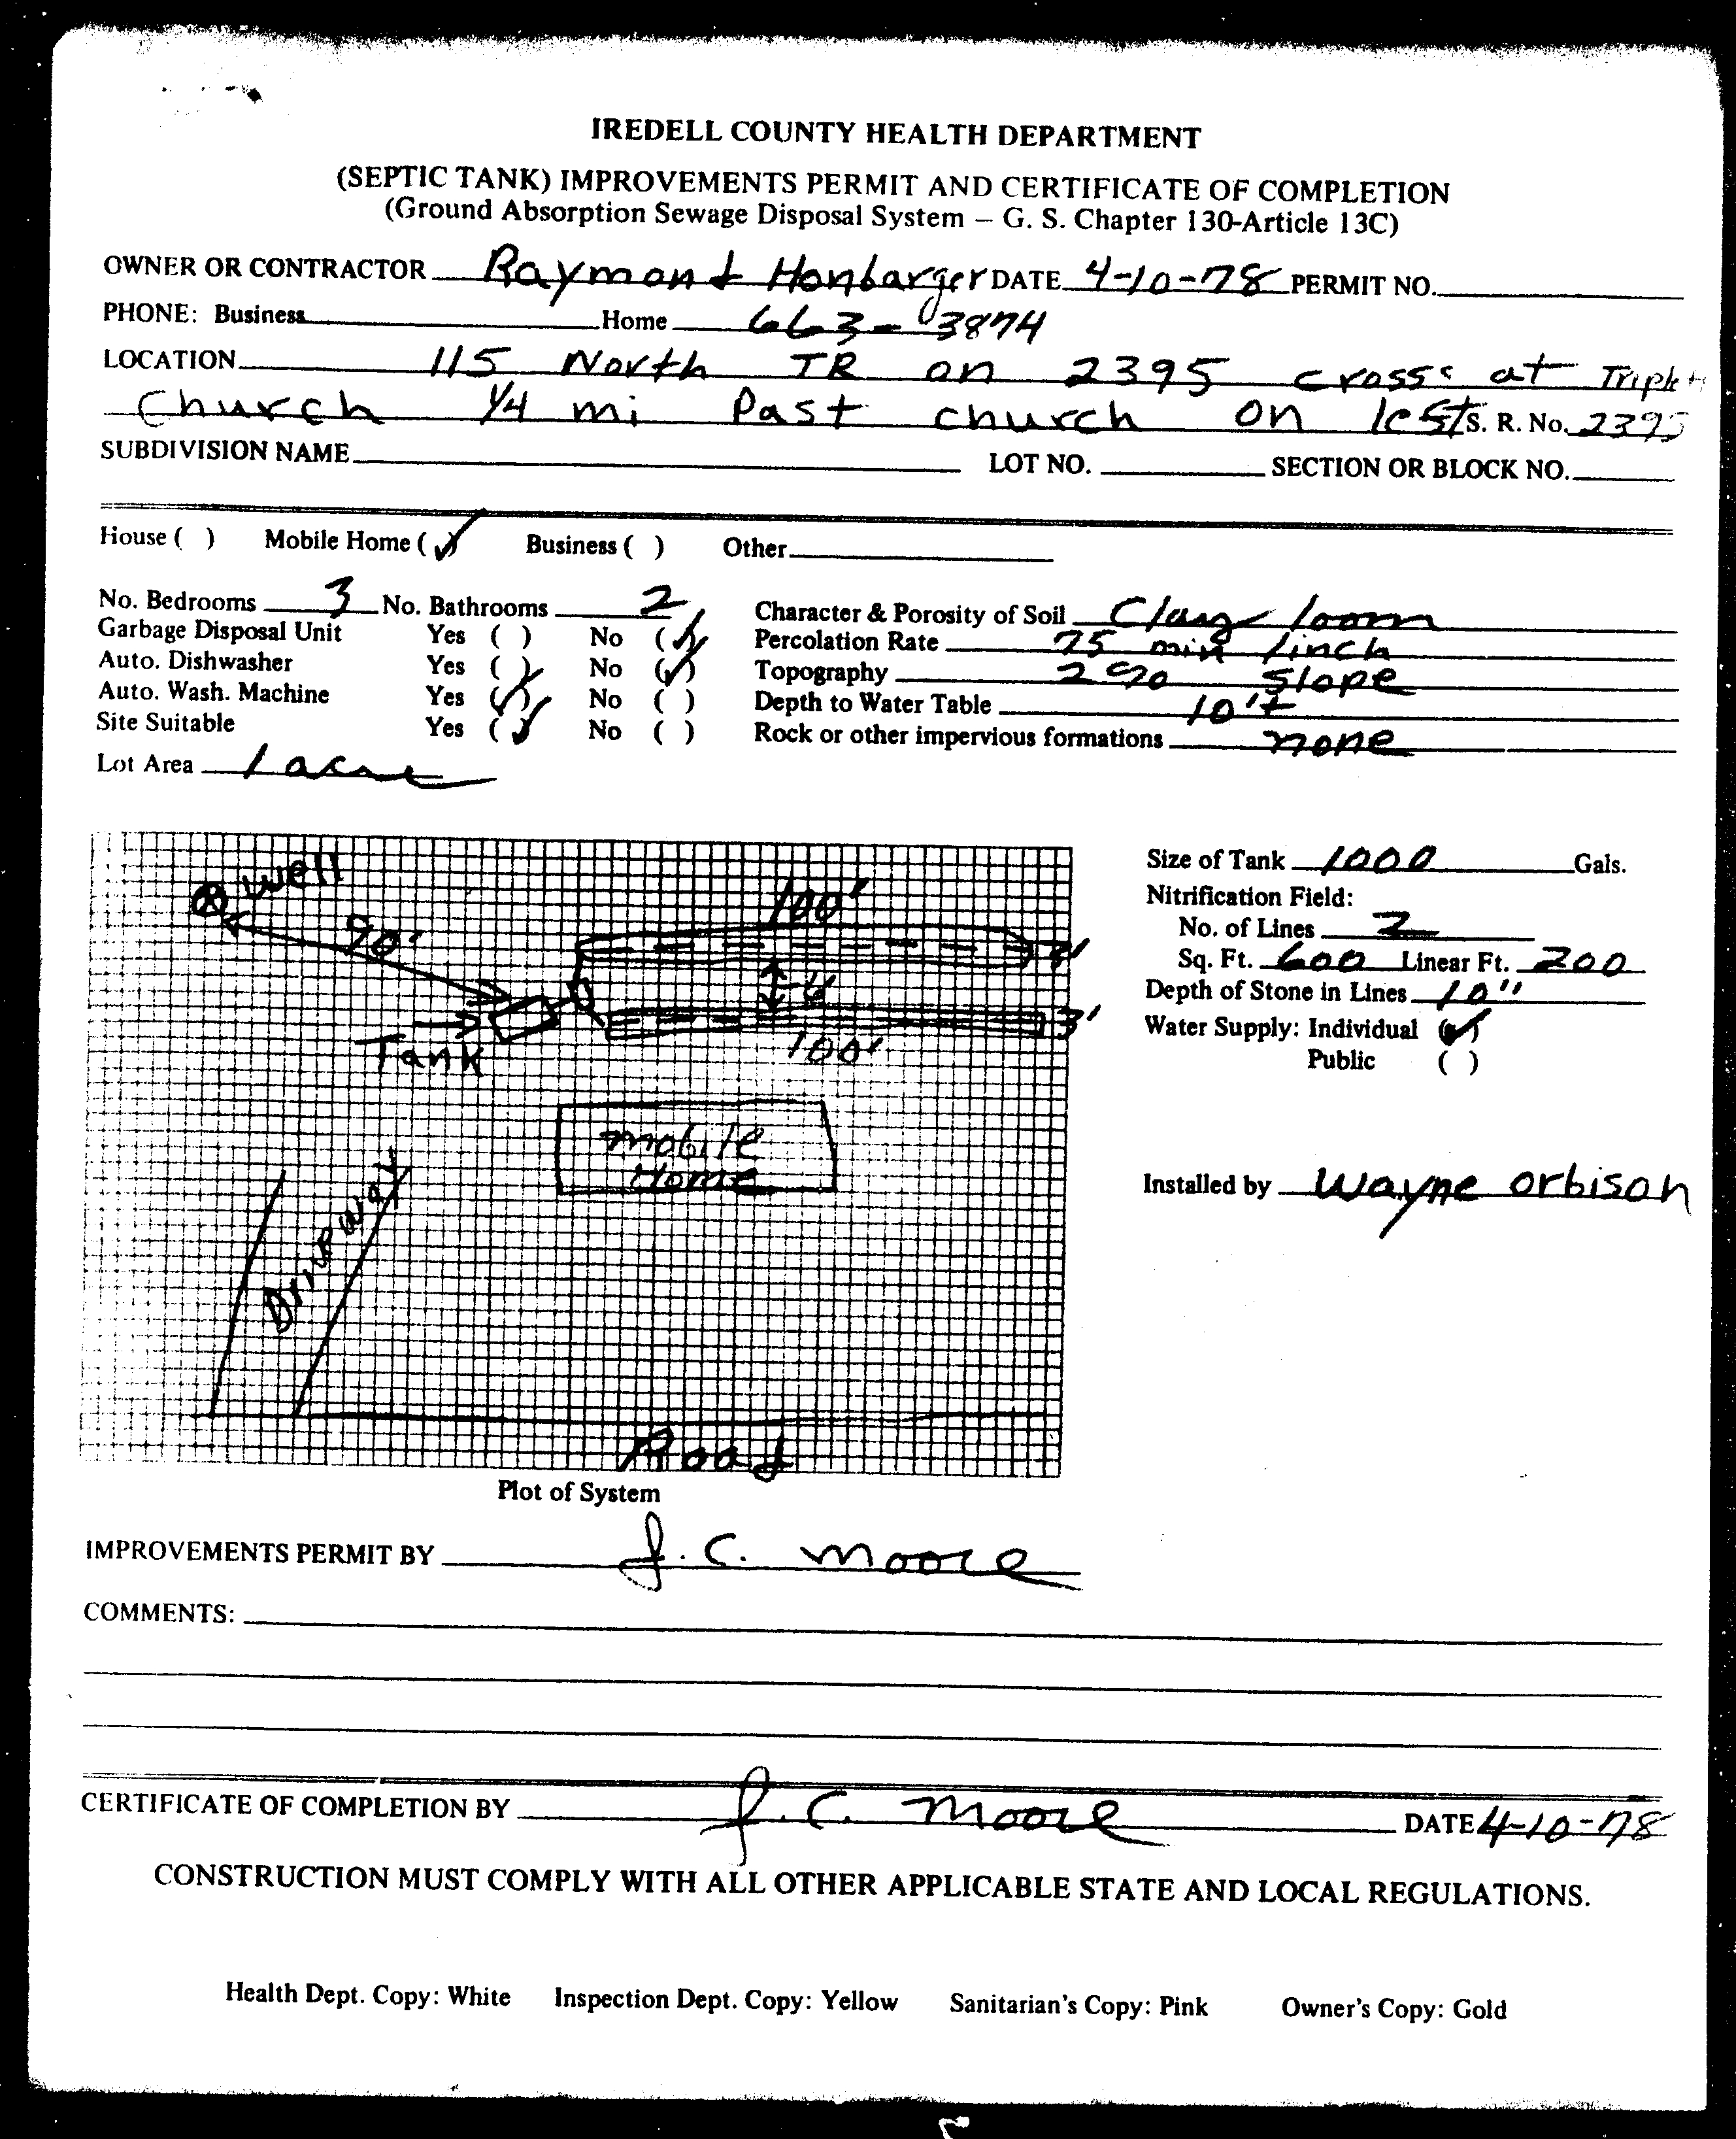 IREDELL COUNTY HEALTH DEPARTMENT
(SEPTIC TANK) IMPROVEMENTS PERMIT AND CERTIFICATE OF COMPLETION
(Ground Absorption Sewage Disposal System – G. S. Chapter 130-Article 13C)
OWNER OR CONTRACTOR Raymond Honbarger DATE 4-10-78 PERMIT NO.
PHONE: Business Home 663-3874
LOCATION 115 North TR on 2395 cross at
Church 1/4 mi Past church on left S. R. No. 2395
SUBDIVISION NAME LOT NO. SECTION OR BLOCK NO.
House ( ) Mobile Home (✓) Business ( ) Other
No. Bedrooms 3 No. Bathrooms 2 Character & Porosity of Soil Clay loam
Garbage Disposal Unit Yes ( ) No (✓) Percolation Rate 75 min /inch
Auto. Dishwasher Yes ( ) No (✓) Topography 2% slope
Auto. Wash. Machine Yes (✓) No ( ) Depth to Water Table 10'+
Site Suitable Yes (✓) No ( ) Rock or other impervious formations none
Lot Area 1 acre
Well
90'
100'
3'
6'
3'
100'
Tank
mobile
Home
Driveway
Road
Size of Tank 1000 Gals.
Nitrification Field:
No. of Lines 2
Sq. Ft. 600 Linear Ft. 200
Depth of Stone in Lines 10"
Water Supply: Individual (✓)
Public ( )
Installed by Wayne Orbison
Plot of System
IMPROVEMENTS PERMIT BY J. C. Moore
COMMENTS:
CERTIFICATE OF COMPLETION BY J. C. Moore DATE 4-10-78
CONSTRUCTION MUST COMPLY WITH ALL OTHER APPLICABLE STATE AND LOCAL REGULATIONS.
Health Dept. Copy: White Inspection Dept. Copy: Yellow Sanitarian's Copy: Pink Owner's Copy: Gold